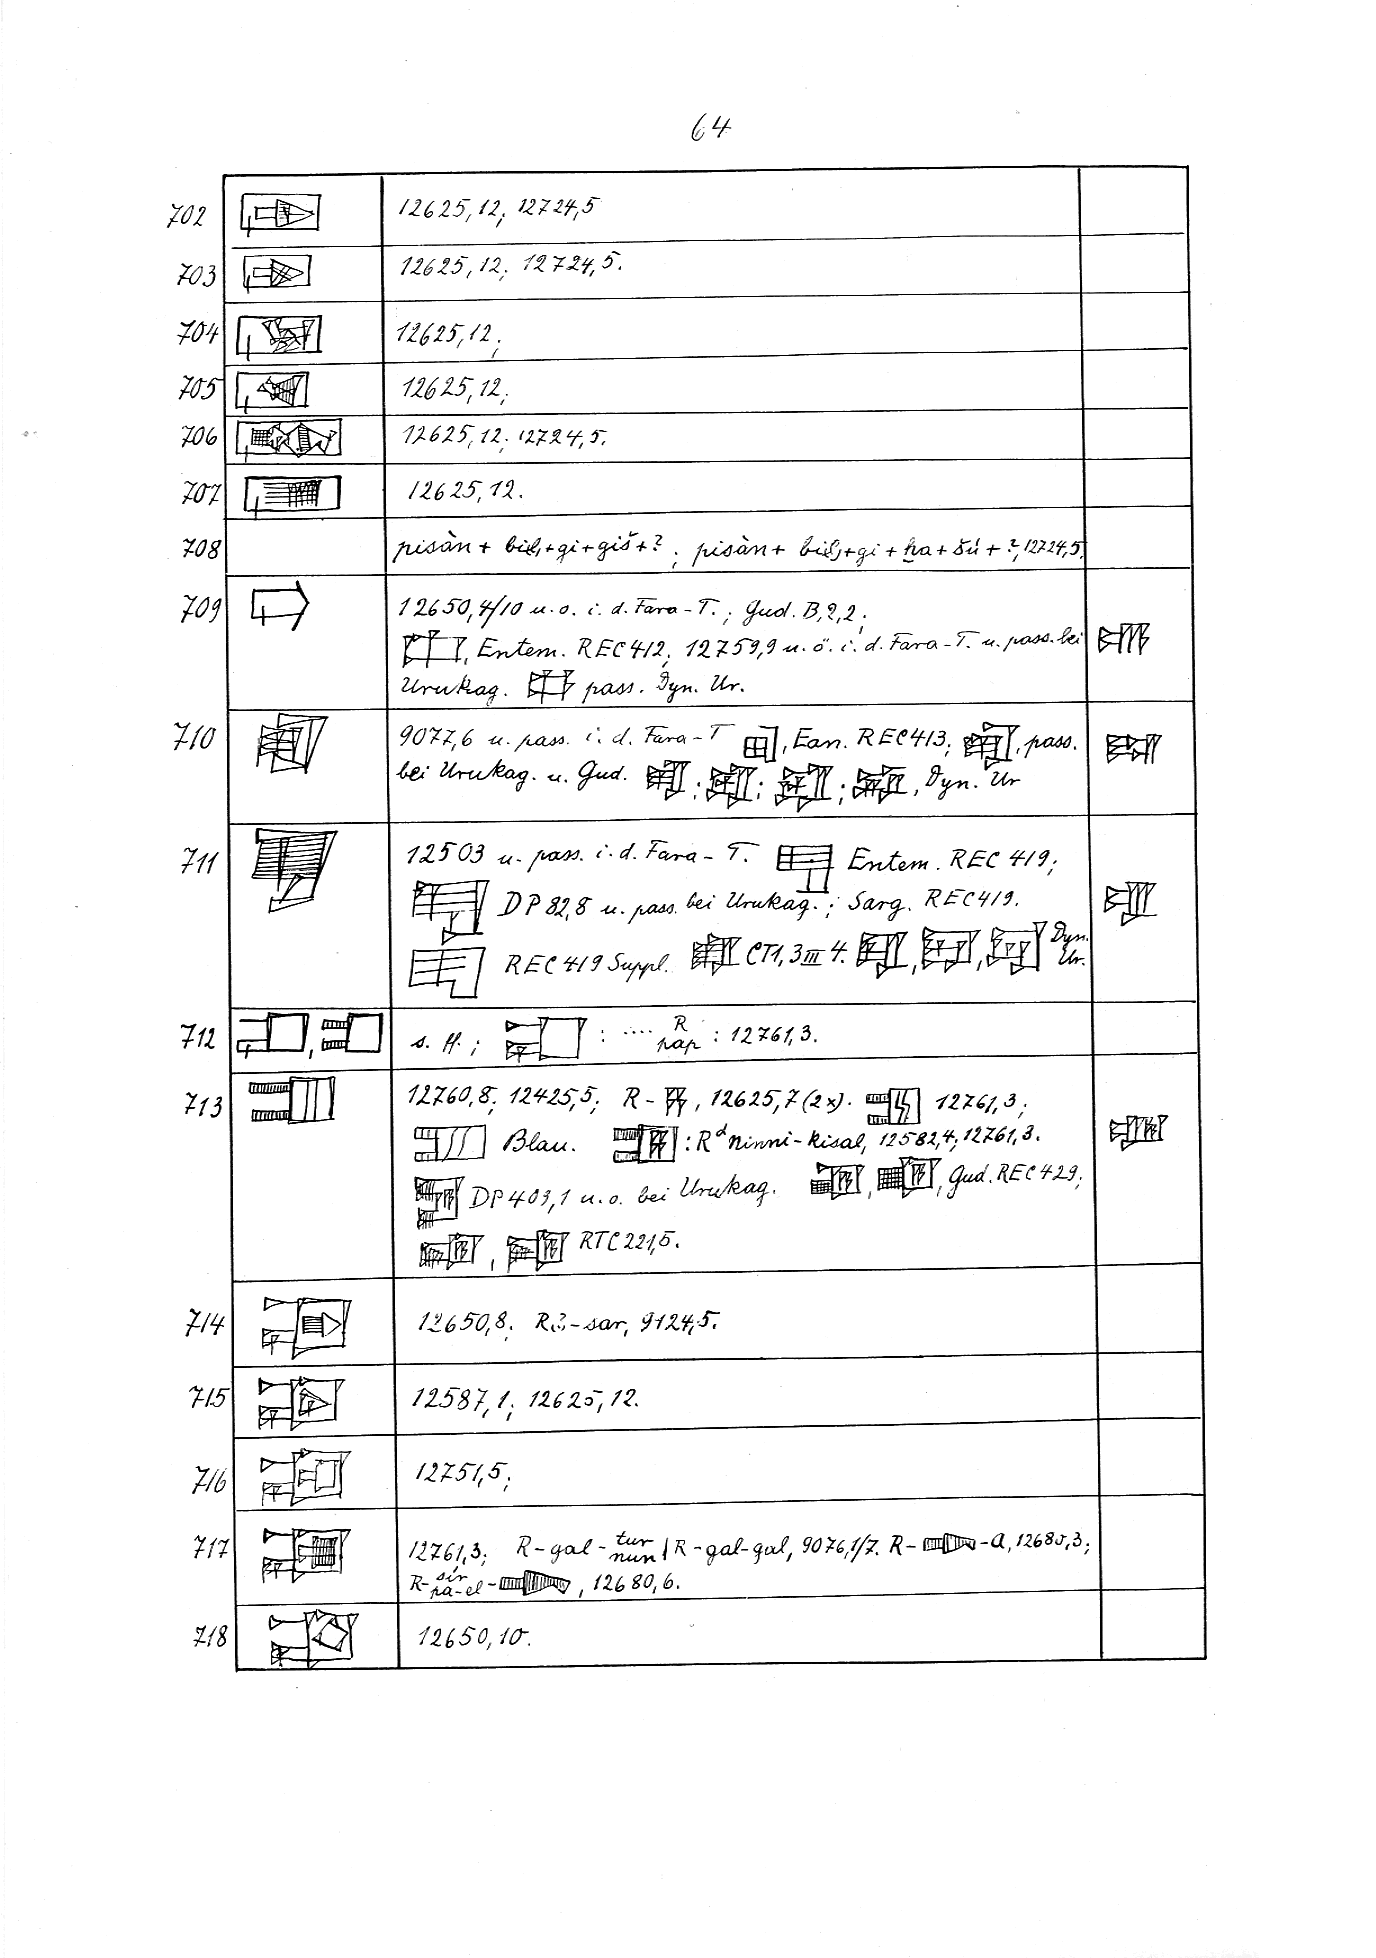 64
702 12625,12; 12724,5
703 12625,12; 12724,5.
704 12625,12;
705 12625,12;
706 12625,12; 12724,5.
707 12625,12.
708 pisàn + bil+gi+giš+?; pisàn+ bil+gi+ḫa+šú+?, 12724,5.
709 12650,4/10 u. o. i. d. Fara-T.; Gud. B,2,2;
, Entem. REC 412, 12759,9 u. ö. i. d. Fara-T. u. pass. bei
Urukag. pass. Dyn. Ur.
710 9077,6 u. pass. i. d. Fara-T , Ean. REC 413; , pass.
bei Urukag. u. Gud. ; ; ; , Dyn. Ur
711 12503 u. pass. i. d. Fara-T. Entem. REC 419;
DP 82,8 u. pass. bei Urukag.; Sarg. REC 419.
REC 419 Suppl. CT1, 3 III 4. , , Dyn. Ur.
712 , s. ff.; : .... R pap : 12761,3.
713 12760,8; 12425,5; R- , 12625,7 (2x). 12761,3;
Blau. : R d Ninni-kisal, 12582,4; 12761,3.
DP 403,1 u. o. bei Urukag. , , Gud. REC 429;
, RTC 221,5.
714 12650,8; -sar, 9124,5.
715 12587,1; 12625,12.
716 12751,5;
717 12761,3; R-gal-tur nun / R-gal-gal, 9076,1/7. R- -a, 12685,3;
R-sír pa-el- , 12680,6.
718 12650,10.